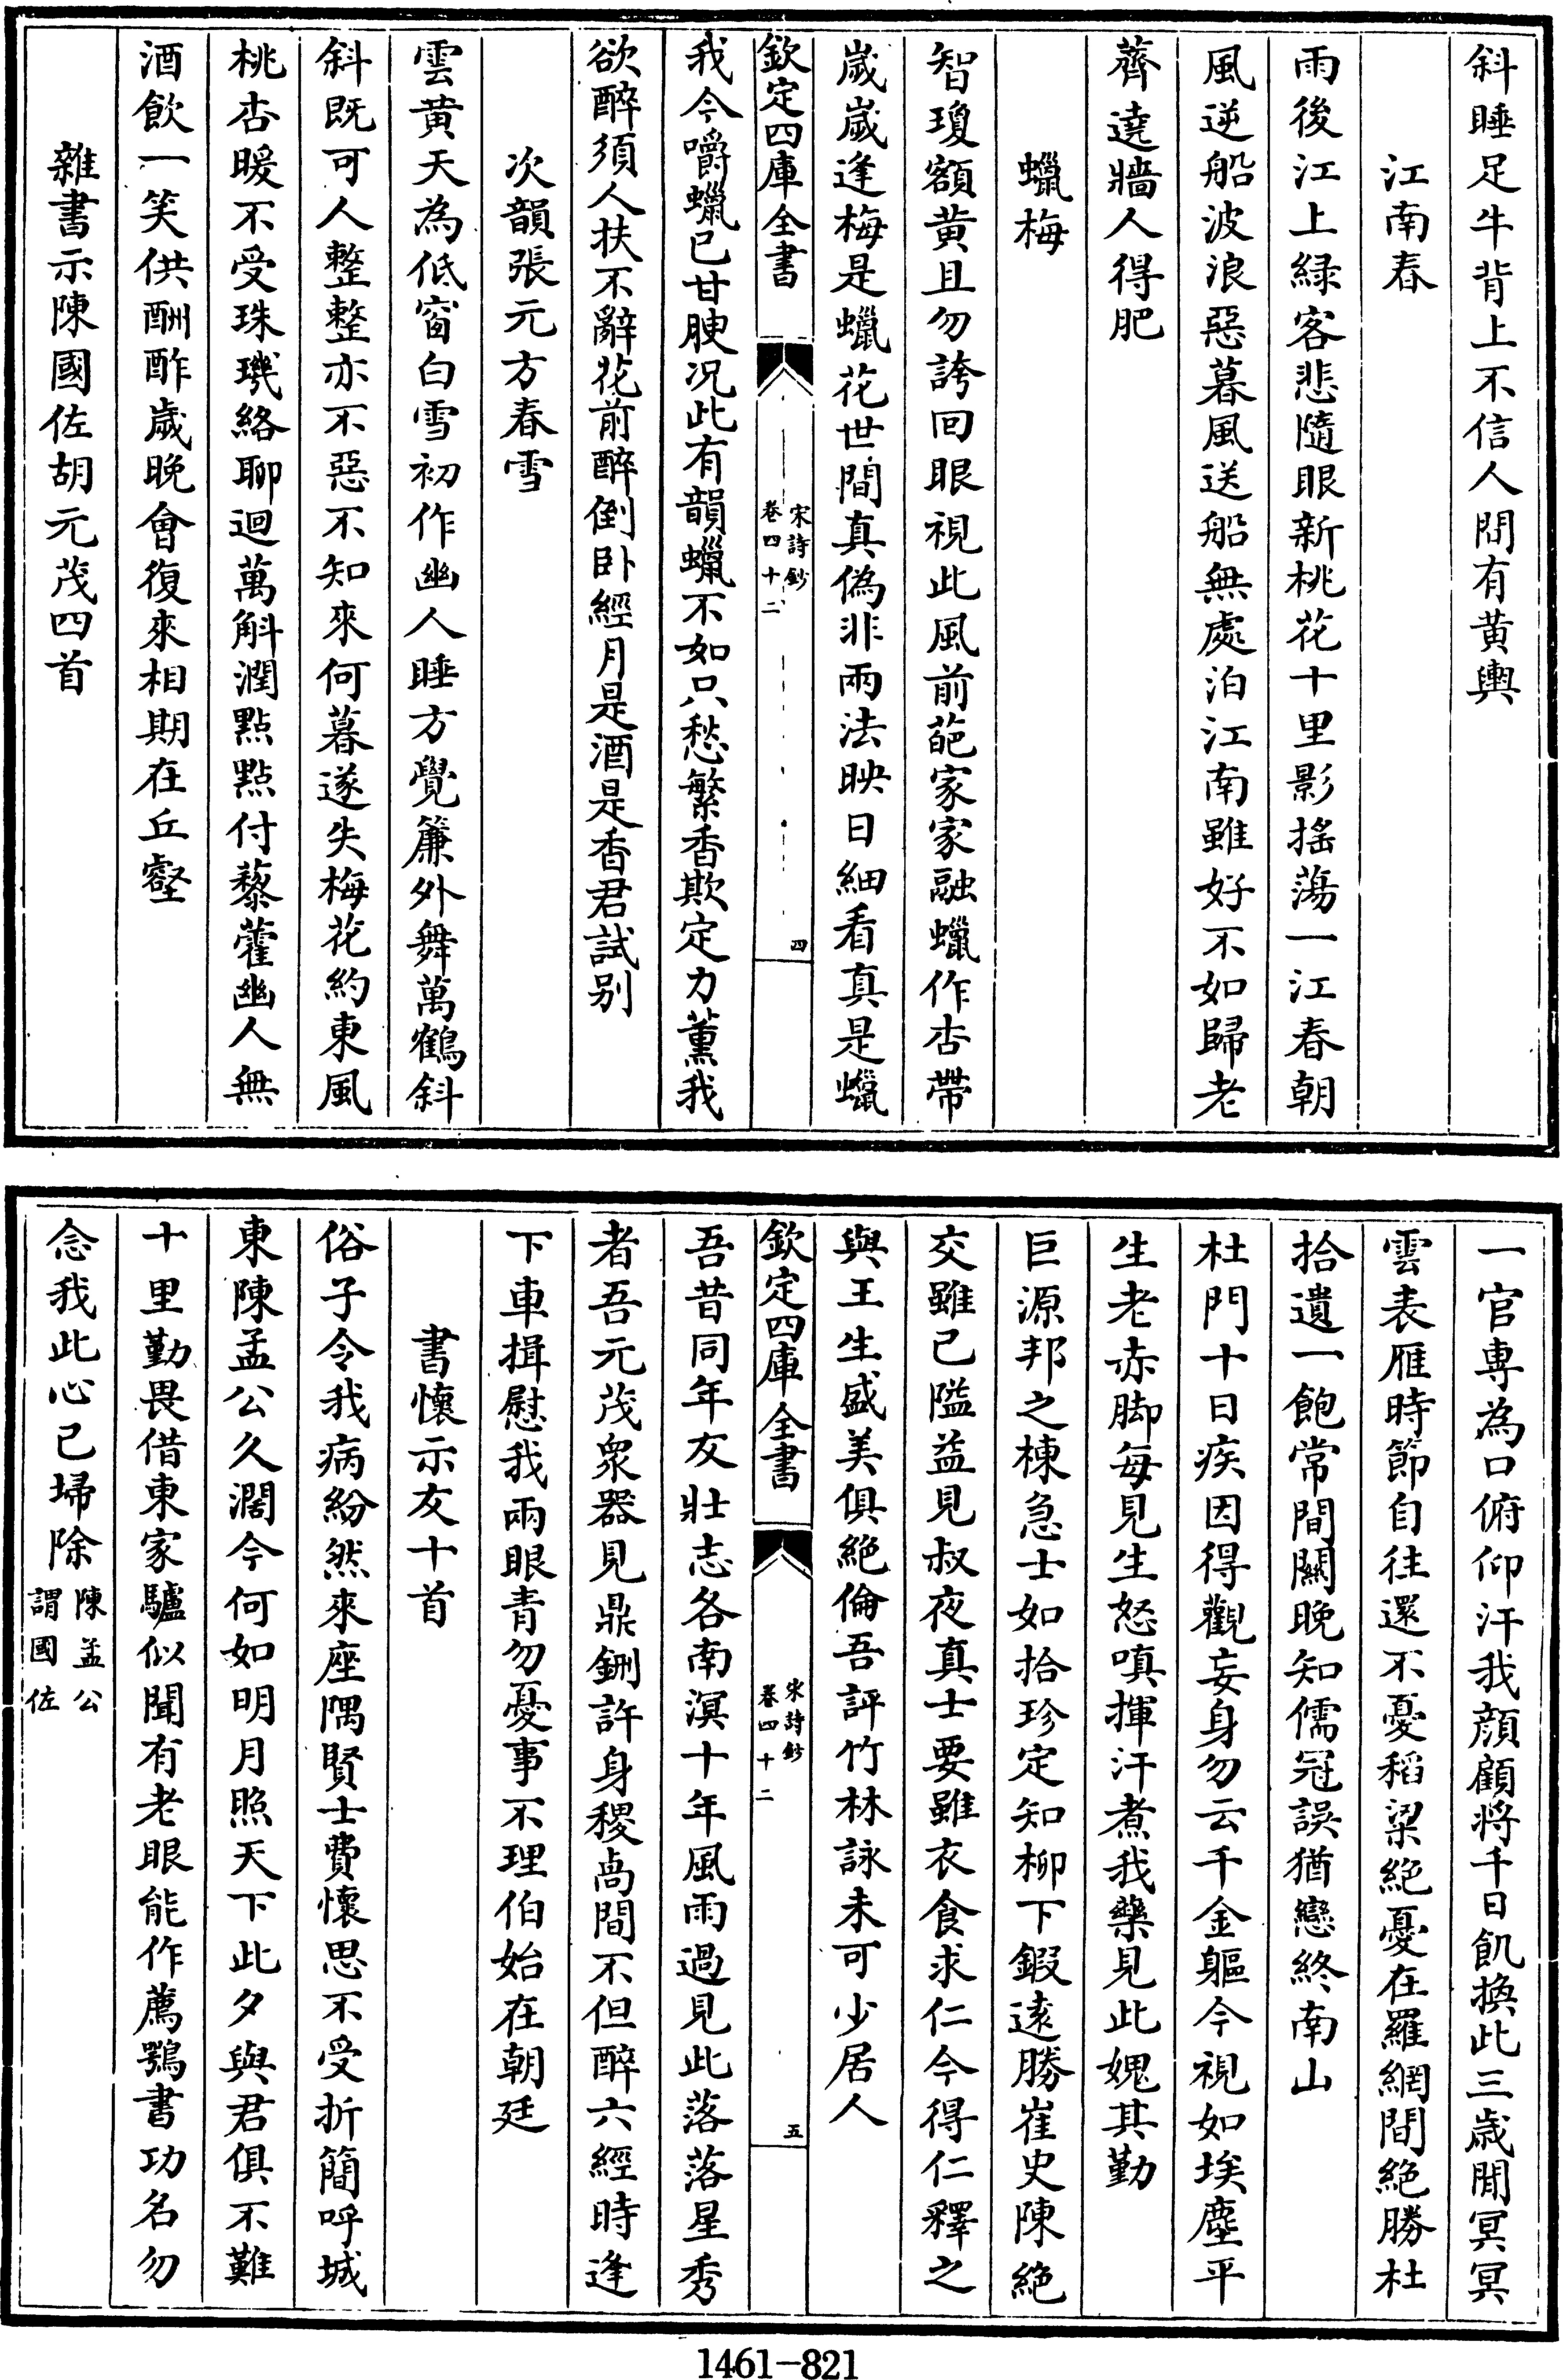 斜睡足牛背上不信人間有黄輿
江南春
雨後江上緑客悲隨眼新桃花十里影摇蕩一江春朝
風逆船波浪惡暮風送船無處泊江南雖好不如歸老
薺遶牆人得肥
蠟梅
智瓊額黄且勿誇回眼視此風前葩家家融蠟作杏帶
嵗嵗逢梅是蠟花世間真偽非兩法映日細看真是蠟
欽定四庫全書
宋詩鈔
卷四十二
四
我今嚼蠟已甘腴況此有韻蠟不如只愁繁香欺定力薰我
欲醉須人扶不辭花前醉倒卧經月是酒是香君試别
次韻張元方春雪
雲黄天為低窗白雪初作幽人睡方覺簾外舞萬鶴斜
斜既可人整整亦不惡不知來何暮遂失梅花約東風
桃杏暖不受珠璣絡聊迴萬斛潤點點付藜藿幽人無
酒飲一笑供酬酢歲晚會復來相期在丘壑
雜書示陳國佐胡元茂四首
一官専為口俯仰汗我顔顧将千日飢換此三歳閒冥冥
雲表雁時節自往還不憂稻粱絶憂在羅網間絶勝杜
拾遺一飽常間關晚知儒冠誤猶戀終南山
杜門十日疾因得觀妄身勿云千金軀今視如埃塵平
生老赤脚每見生怒嗔揮汗煮我藥見此媿其勤
巨源邦之棟急士如拾珍定知柳下鍜逺勝崔史陳絶
交雖已隘益見叔夜真士要雖衣食求仁今得仁釋之
與王生盛美俱絶倫吾評竹林詠未可少居人
欽定四庫全書
宋詩鈔
卷四十二
五
吾昔同年友壯志各南溟十年風雨過見此落落星秀
者吾元茂衆器見鼎鉶許身稷卨間不但醉六經時逢
下車揖慰我兩眼青勿憂事不理伯始在朝廷
書懷示友十首
俗子令我病紛然來座隅賢士費懷思不受折簡呼城
東陳孟公久濶今何如明月照天下此夕與君俱不難
十里勤畏借東家驢似聞有老眼能作薦鶚書功名勿
念我此心已埽除陳孟公謂國佐
1461-821